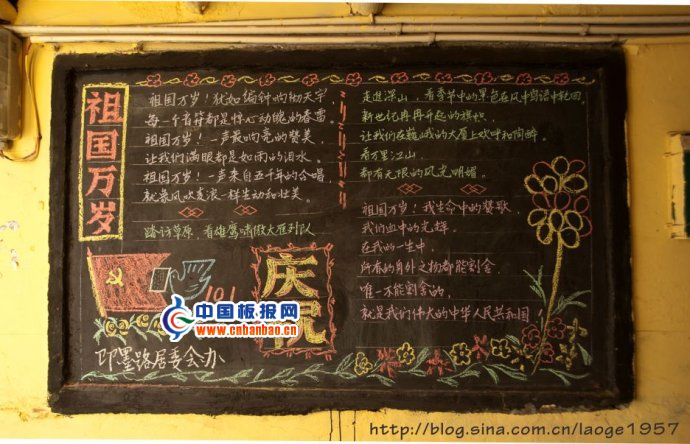 祖国万岁
祖国万岁！犹如编钟响彻天宇
每一个音符都是惊心动魄的春雷
祖国万岁！一声最响亮的赞美
让我们满眼都是如雨的泪水
祖国万岁！一声来自五十年的合唱
就象风吹麦浪一样生动和壮美
踏访草原，看雄鹰啸傲大雁列队
走进深山，看季节中的果色在风中鸟语中轮回
新世纪冉冉升起的旗帜
让我们在巍峨的大厦上欢呼和陶醉
看万里江山
都有无限的风光明媚。
祖国万岁！我生命中的赞歌
我们血中的光辉
在我的一生中
所有的身外之物都能割舍
唯一不能割舍的，
就是我们伟大的中华人民共和国！
10.1
庆祝
中国板报网
www.cnbanbao.cn
即墨路居委会办
http://blog.sina.com.cn/laoge1957